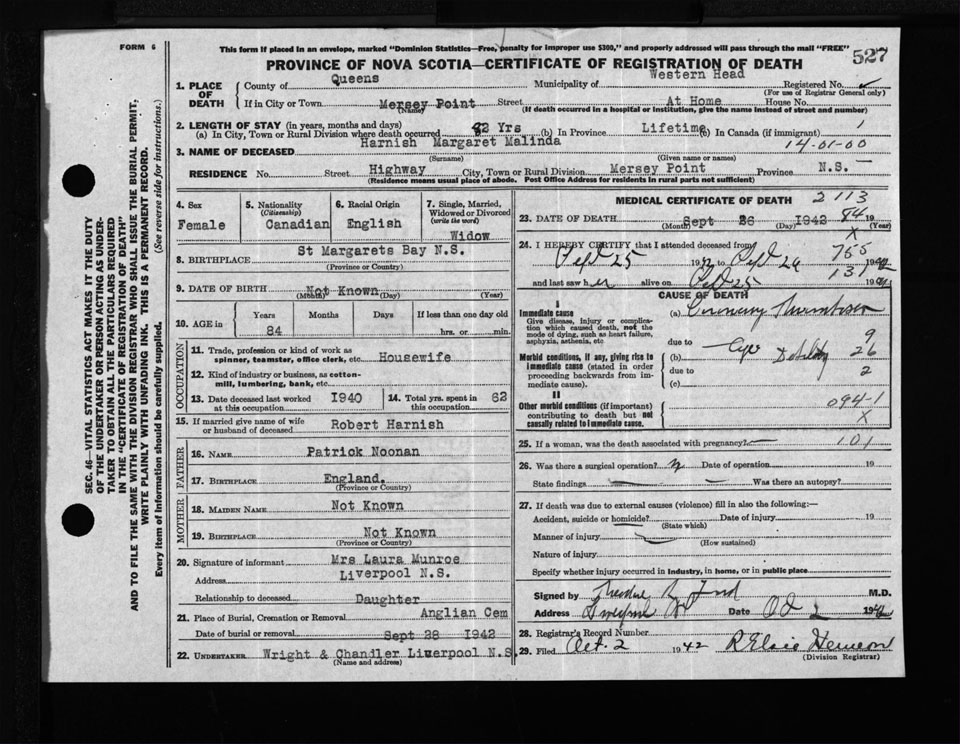 FORM 6
This form if placed in an envelope, marked "Dominion Statistics—Free, penalty for improper use $300," and properly addressed will pass through the mail "FREE"
527
PROVINCE OF NOVA SCOTIA—CERTIFICATE OF REGISTRATION OF DEATH
1. PLACE OF DEATH
County of Queens Municipality of Western Head Registered No.
(For use of Registrar General only)
If in City or Town Mersey Point Street At Home House No.
(Name) (If death occurred in a hospital or institution, give the name instead of street and number)
2. LENGTH OF STAY (in years, months and days)
(a) In City, Town or Rural Division where death occurred 82 Yrs (b) In Province Lifetime (c) In Canada (if immigrant) 1
3. NAME OF DECEASED Harnish Margaret Malinda 14-01-00
(Surname) (Given name or names)
RESIDENCE No. Street Highway City, Town or Rural Division Mersey Point Province N.S.
(Residence means usual place of abode. Post Office Address for residents in rural parts not sufficient)
4. Sex Female
5. Nationality (Citizenship) Canadian
6. Racial Origin English
7. Single, Married, Widowed or Divorced (write the word) Widow
8. BIRTHPLACE St Margarets Bay N.S.
(Province or Country)
9. DATE OF BIRTH Not Known
(Month) (Day) (Year)
10. AGE in Years Months Days If less than one day old
84 hrs. or min.
OCCUPATION
11. Trade, profession or kind of work as spinner, teamster, office clerk, etc. Housewife
12. Kind of industry or business, as cotton-mill, lumbering, bank, etc.
13. Date deceased last worked at this occupation 1940
14. Total yrs. spent in this occupation 62
15. If married give name of wife or husband of deceased Robert Harnish
FATHER
16. NAME Patrick Noonan
17. BIRTHPLACE England.
(Province or Country)
MOTHER
18. MAIDEN NAME Not Known
19. BIRTHPLACE Not Known
(Province or Country)
20. Signature of informant Mrs Laura Munroe
Address Liverpool N.S.
Relationship to deceased Daughter
21. Place of Burial, Cremation or Removal Anglian Cem
Date of burial or removal Sept 28 1942
22. UNDERTAKER Wright & Chandler Liverpool N.S.
(Name and address)
MEDICAL CERTIFICATE OF DEATH 2113
23. DATE OF DEATH Sept 26 1942 84 19
(Month) (Day) (Year)
X
24. I HEREBY CERTIFY that I attended deceased from
Sept 25 1942 to Sept 26 755 1942
and last saw her alive on Sept 25 131 1942
CAUSE OF DEATH
I
Immediate cause
Give disease, injury or complication which caused death, not the mode of dying, such as heart failure, asphyxia, asthenia, etc
(a) Coronary Thrombosis
due to
9
Morbid conditions, if any, giving rise to immediate cause (stated in order proceeding backwards from immediate cause).
(b) Age Debility 26
due to 2
(c)
II
Other morbid conditions (if important) contributing to death but not causally related to immediate cause.
094-1
X
25. If a woman, was the death associated with pregnancy? 101
26. Was there a surgical operation? Date of operation 19
State findings Was there an autopsy?
27. If death was due to external causes (violence) fill in also the following:—
Accident, suicide or homicide? Date of injury 19
(State which)
Manner of injury
(How sustained)
Nature of injury
Specify whether injury occurred in industry, in home, or in public place
Signed by M.D.
Address Date Oct 2 1942
28. Registrar's Record Number
29. Filed Oct. 2 1942
(Division Registrar)
SEC. 46—VITAL STATISTICS ACT MAKES IT THE DUTY
OF THE UNDERTAKER OR PERSON ACTING AS UNDER-
TAKER TO OBTAIN ALL THE PARTICULARS REQUIRED
IN THE "CERTIFICATE OF REGISTRATION OF DEATH"
AND TO FILE THE SAME WITH THE DIVISION REGISTRAR WHO SHALL ISSUE THE BURIAL PERMIT,
WRITE PLAINLY WITH UNFADING INK. THIS IS A PERMANENT RECORD.
Every item of Information should be carefully supplied. (See reverse side for instructions.)